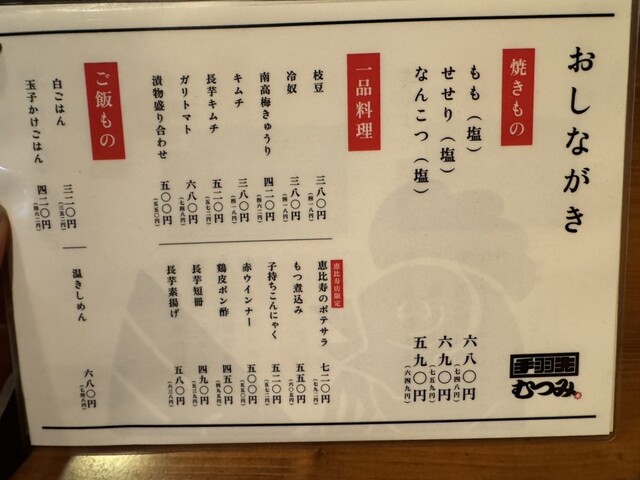 おしながき
焼きもの
もも（塩） 六八〇円（七四八円）
せせり（塩） 六九〇円（七五九円）
なんこつ（塩） 五九〇円（六四九円）
一品料理
枝豆 三八〇円（四一八円）
冷奴 三八〇円（四一八円）
南高梅きゅうり 四二〇円（四六二円）
キムチ 三八〇円（四一八円）
長芋キムチ 五二〇円（五七二円）
ガリトマト 六八〇円（七四八円）
漬物盛り合わせ 五〇〇円（五五〇円）
恵比寿店限定
恵比寿のポテサラ 七二〇円（七九二円）
もつ煮込み 五五〇円（六〇五円）
子持ちこんにゃく 五二〇円（五七二円）
赤ウインナー 五〇〇円（五五〇円）
鶏皮ポン酢 四五〇円（四九五円）
長芋短冊 四九〇円（五三九円）
長芋素揚げ 五八〇円（六三八円）
ご飯もの
白ごはん 三二〇円（三五二円）
玉子かけごはん 四二〇円（四六二円）
温きしめん 六八〇円（七四八円）
手羽先
むつみ